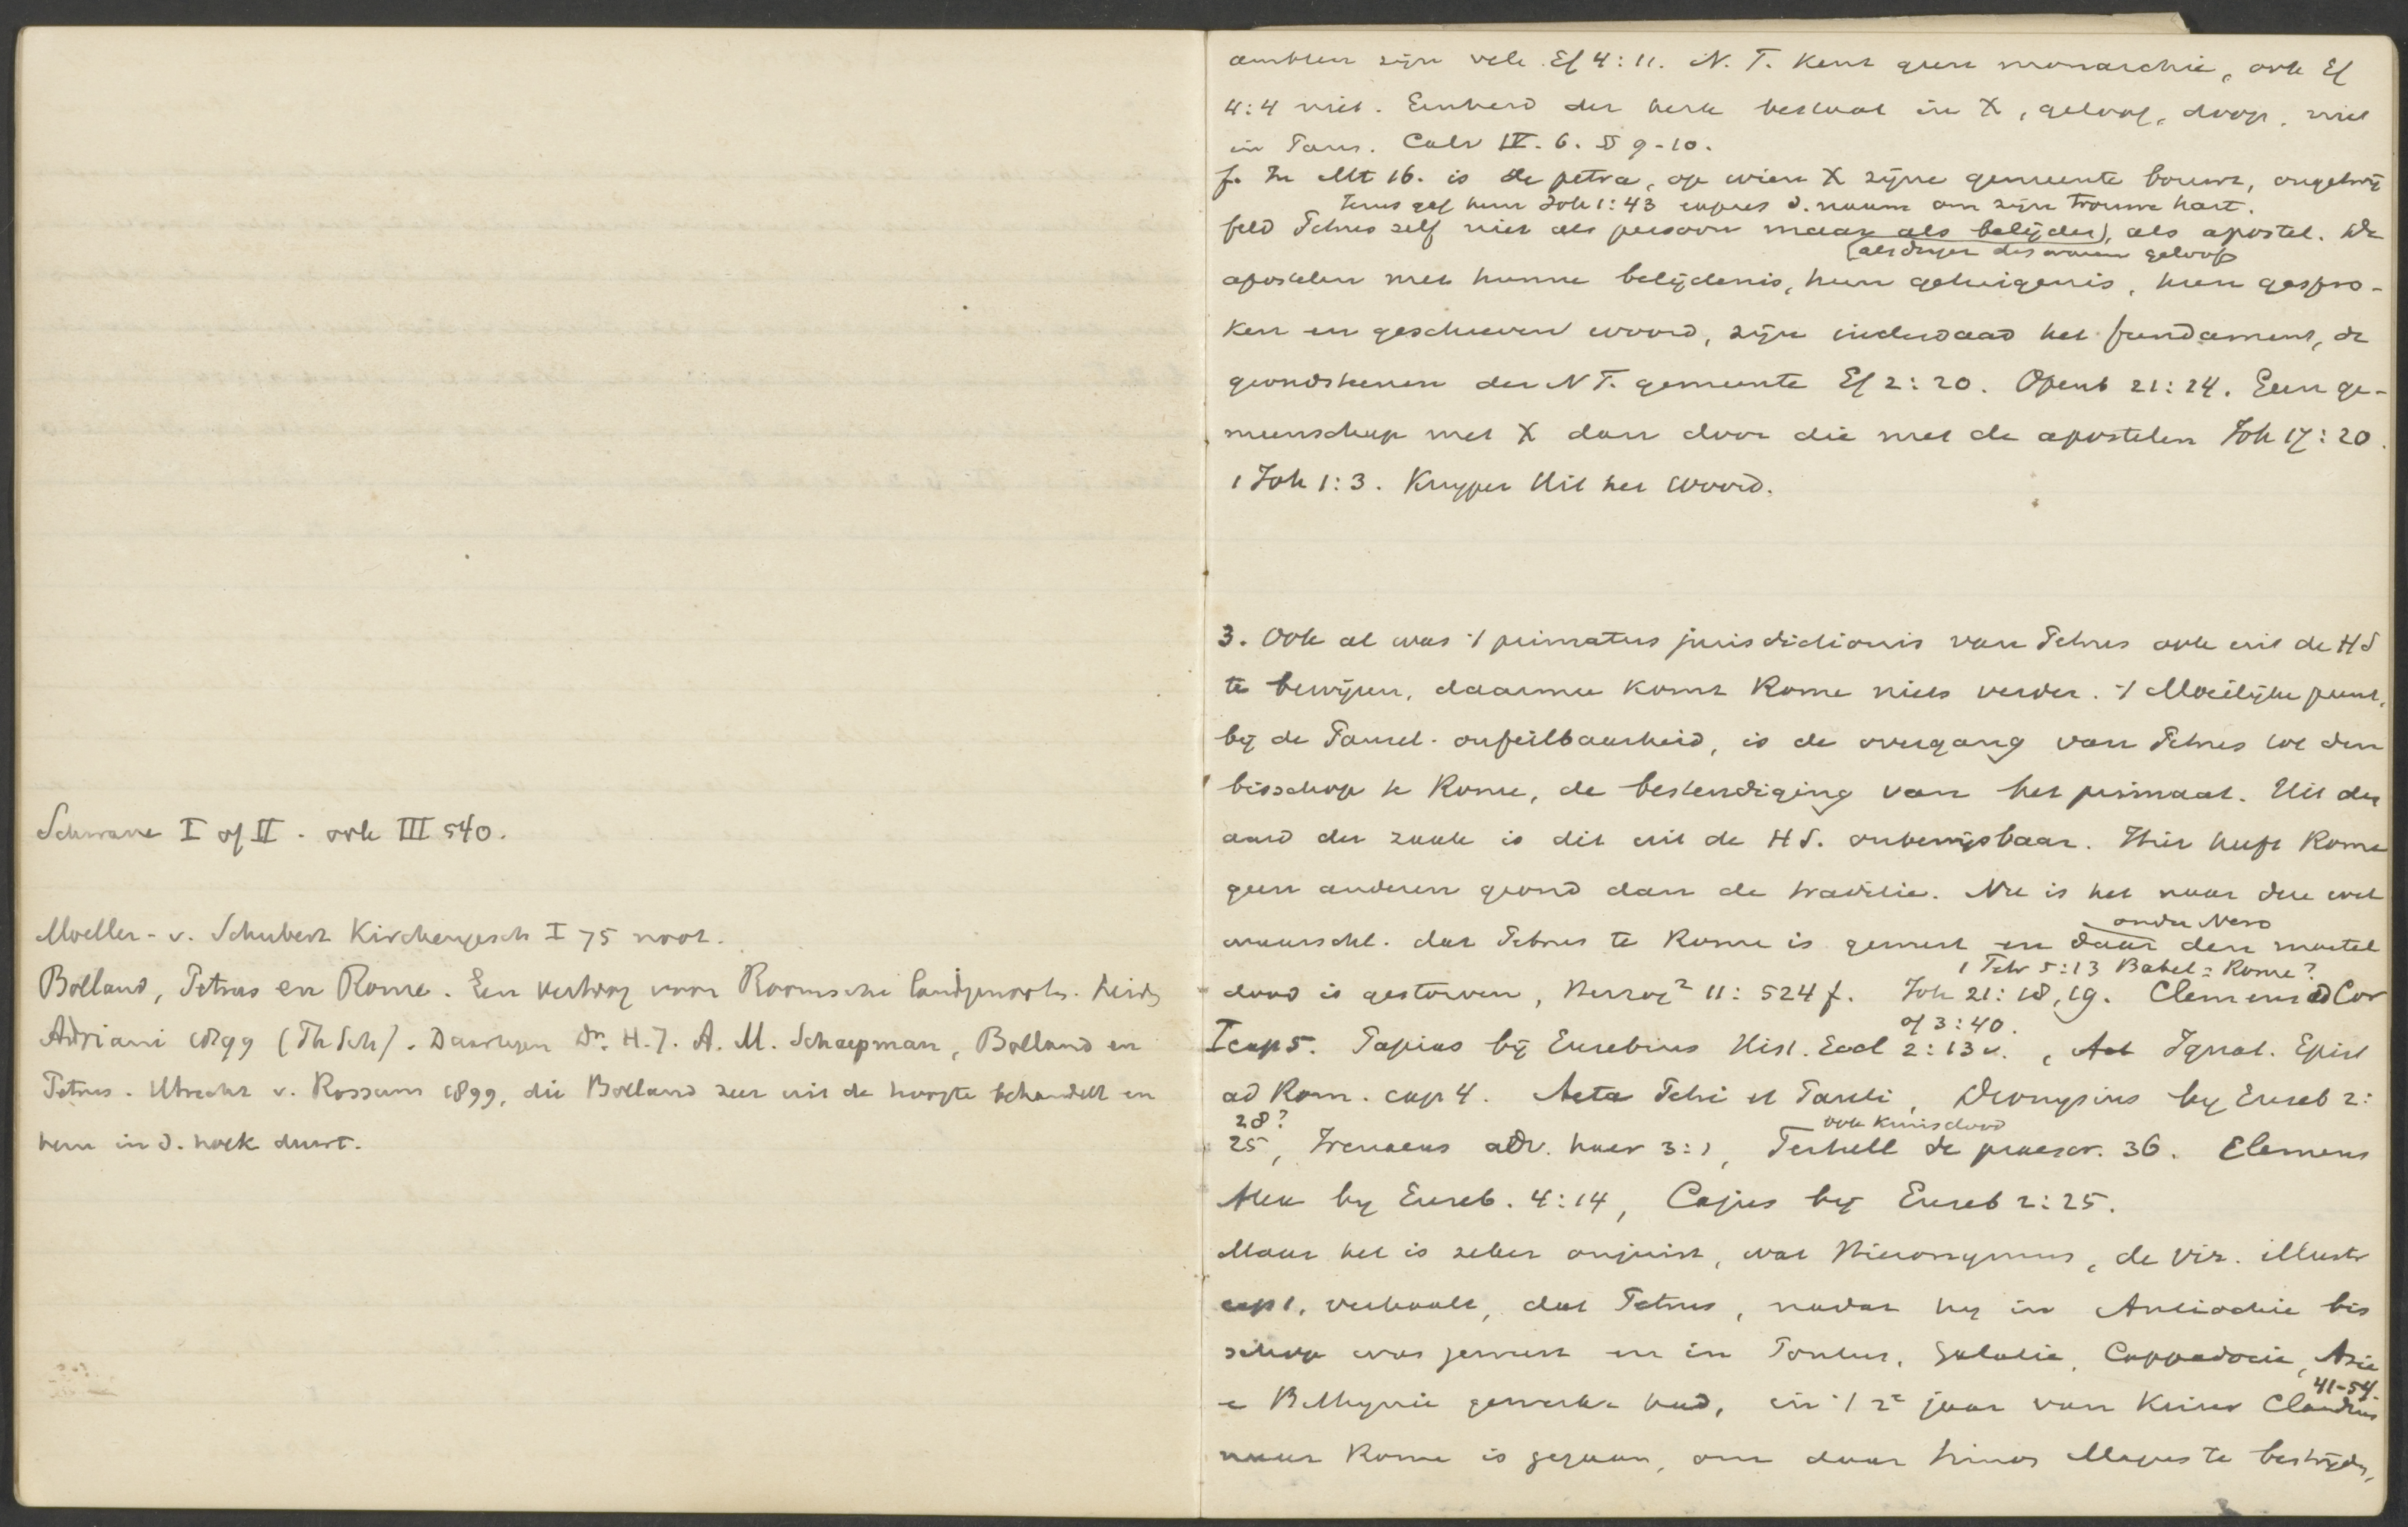 Schwane I of II. ook III 540.
Moeller - v. Schubert Kirchengesch I 75 noot.
Bolland, Petrus en Rome. Een vertoog voor Roomsche landgenooten. Leiden
Adriani 1899 (Th Sch). Daartegen Dr. H. J. A. M. Schaepman, Bolland en
Petrus. Utrecht v. Rossum 1899, die Bolland zeer uit de hoogte behandelt en
hem in d. hoek duwt.
ambten zijn vele. Ef 4:11. N. T. kent geen monarchie, ook Ef
4:4 niet. Eenheid der kerk bestaat in X, geloof, doop, niet
in Paus. Calv IV. 6. §§ 9-10.
f. In Mt 16. is de petra, op wien X zijne gemeente bouwt, ongetwij
Jezus gaf hem Joh 1:43 expres d. naam om zijn trouwe hart.
feld Petrus zelf niet als persoon maar als belijder, als apostel. De
(als drager des waren geloofs
apostelen met hunne belijdenis, hun getuigenis, hun gespro-
ken en geschreven woord, zijn inderdaad het fundament, de
grondsteenen der N T. gemeente Ef 2:20. Openb 21:24. Geen ge-
meenschap met X dan door die met de apostelen Joh 17:20.
1 Joh 1:3. Kuyper Uit het Woord.
3. Ook al was ·/ primatus jurisdictionis van Petrus ook uit de HS
te bewijzen, daarmee komt Rome niets verder. ·/ Moeilijke punt,
bij de Pausel. onfeilbaarheid, is de overgang van Petrus tot den
bisschop te Rome, de bestendiging van het primaat. Uit den
aard der zaak is dit uit de HS. onbewijsbaar. Hier heeft Rome
geen anderen grond dan de traditie. Nu is het naar deze wel
onder Nero
waarschl. dat Petrus te Rome is geweest en daar den martel
1 Petr 5:13 Babel = Rome?
dood is gestorven, Herzog² 11: 524 f. Joh 21:18,19. Clemens ad Cor
of 3:40.
I cap 5. Papias bij Eusebius Hist. Eccl 2:13 v., Ignat. Epist
ad Rom. cap 4. Acta Petri et Pauli, Dionysius by Euseb 2:
28?
ook kruisdood
25, Irenaeus adv. haer 3:1, Tertull de praescr. 36. Clemens
Alex by Euseb. 4:14, Cajus bij Euseb 2:25.
Maar het is zeker onjuist, wat Hieronymus, de vir. illustr
cap 1, verhaalt, dat Petrus, nadat hij in Antiochie bis
schop was geweest en in Pontus, Galatie, Cappadocie, Asie
41-54.
e Bithynie gewerkt had, in ·/ 2e jaar van Keizer Claudius
naar Rome is gegaan, om daar Simon Magus te bestrijden,